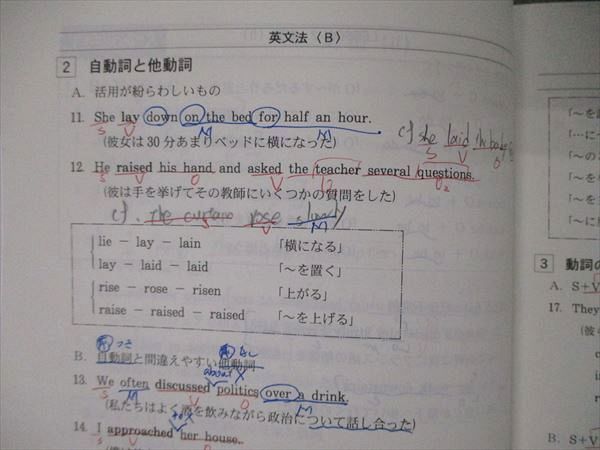 英文法〈B〉
2 自動詞と他動詞
A. 活用が紛らわしいもの
11. She lay down on the bed for half an hour.
S V M M
cf she laid the baby
S V O
(彼女は30分あまりベッドに横になった)
12. He raised his hand and asked the teacher several questions.
S V O V O2
(彼は手を挙げてその教師にいくつかの質問をした)
cf. The curtain rose slowly
V M
lie − lay − lain 「横になる」
lay − laid − laid 「～を置く」
rise − rose − risen 「上がる」
raise − raised − raised 「～を上げる」
B. 自動詞と間違えやすい他動詞
about X
13. We often discussed politics over a drink.
S M V O M
(私たちはよく酒を飲みながら政治について話し合った)
to X
14. I approached her house.
S V O
「～を
…に
「～の
「～を
「～に
3 動詞の
A. S+V
17. They
(彼
B. S+V